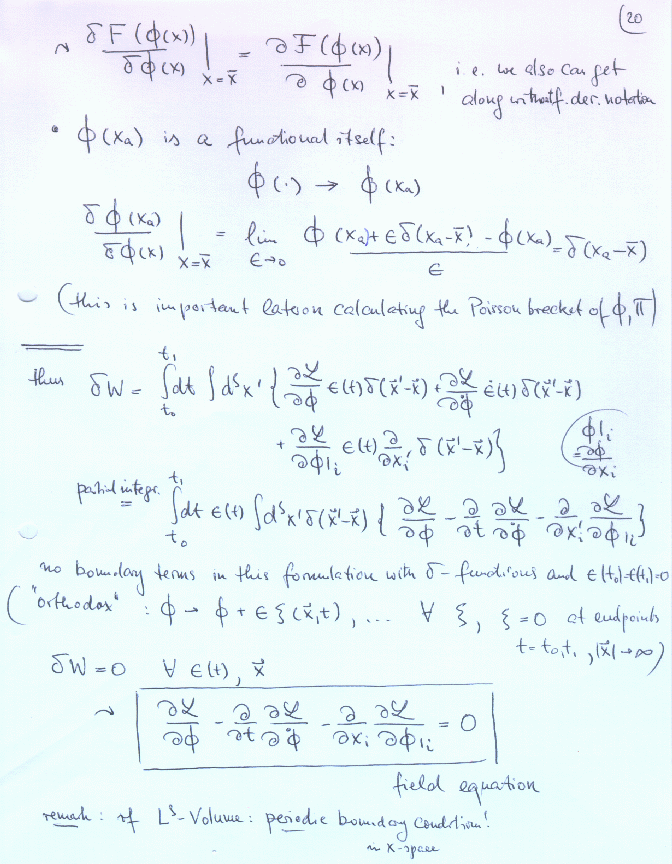 20
~> δF(ϕ(x))/δϕ(x) |_{x=x̄} = ∂F(ϕ(x))/∂ϕ(x) |_{x=x̄} , i.e. we also can get
along without f. der. notation
• ϕ(xₐ) is a functional itself:
ϕ(·) → ϕ(xₐ)
δϕ(xₐ)/δϕ(x) |_{x=x̄} = lim_{ϵ→0} (ϕ(xₐ) + ϵδ(xₐ-x̄) - ϕ(xₐ))/ϵ = δ(xₐ-x̄)
(this is important later on calculating the Poisson brecket of ϕ, Π)
thus δW = ∫_{t₀}^{t₁} dt ∫d^s x' { ∂ℒ/∂ϕ ϵ(t) δ(x⃗'-x⃗) + ∂ℒ/∂ϕ̇ ϵ̇(t) δ(x⃗'-x⃗)
+ ∂ℒ/∂ϕ|ᵢ ϵ(t) ∂/∂xᵢ' δ(x⃗'-x⃗) }
ϕ|ᵢ
= ∂ϕ/∂xᵢ
partial integr. = ∫_{t₀}^{t₁} dt ϵ(t) ∫d^s x' δ(x⃗'-x⃗) { ∂ℒ/∂ϕ - ∂/∂t ∂ℒ/∂ϕ̇ - ∂/∂xᵢ' ∂ℒ/∂ϕ|ᵢ }
no boundary terms in this formulation with δ-functions and ϵ(t₀)=ϵ(t₁)=0
("orthodox" : ϕ → ϕ + ϵ ξ(x⃗,t), ... ∀ ξ, ξ = 0 at endpoints
t = t₀, t₁, |x⃗| → ∞)
δW = 0 ∀ ϵ(t), x⃗
~> ∂ℒ/∂ϕ - ∂/∂t ∂ℒ/∂ϕ̇ - ∂/∂xᵢ ∂ℒ/∂ϕ|ᵢ = 0
field equation
remark: if L^s-Volume: periodic boundary conditions!
in x-space